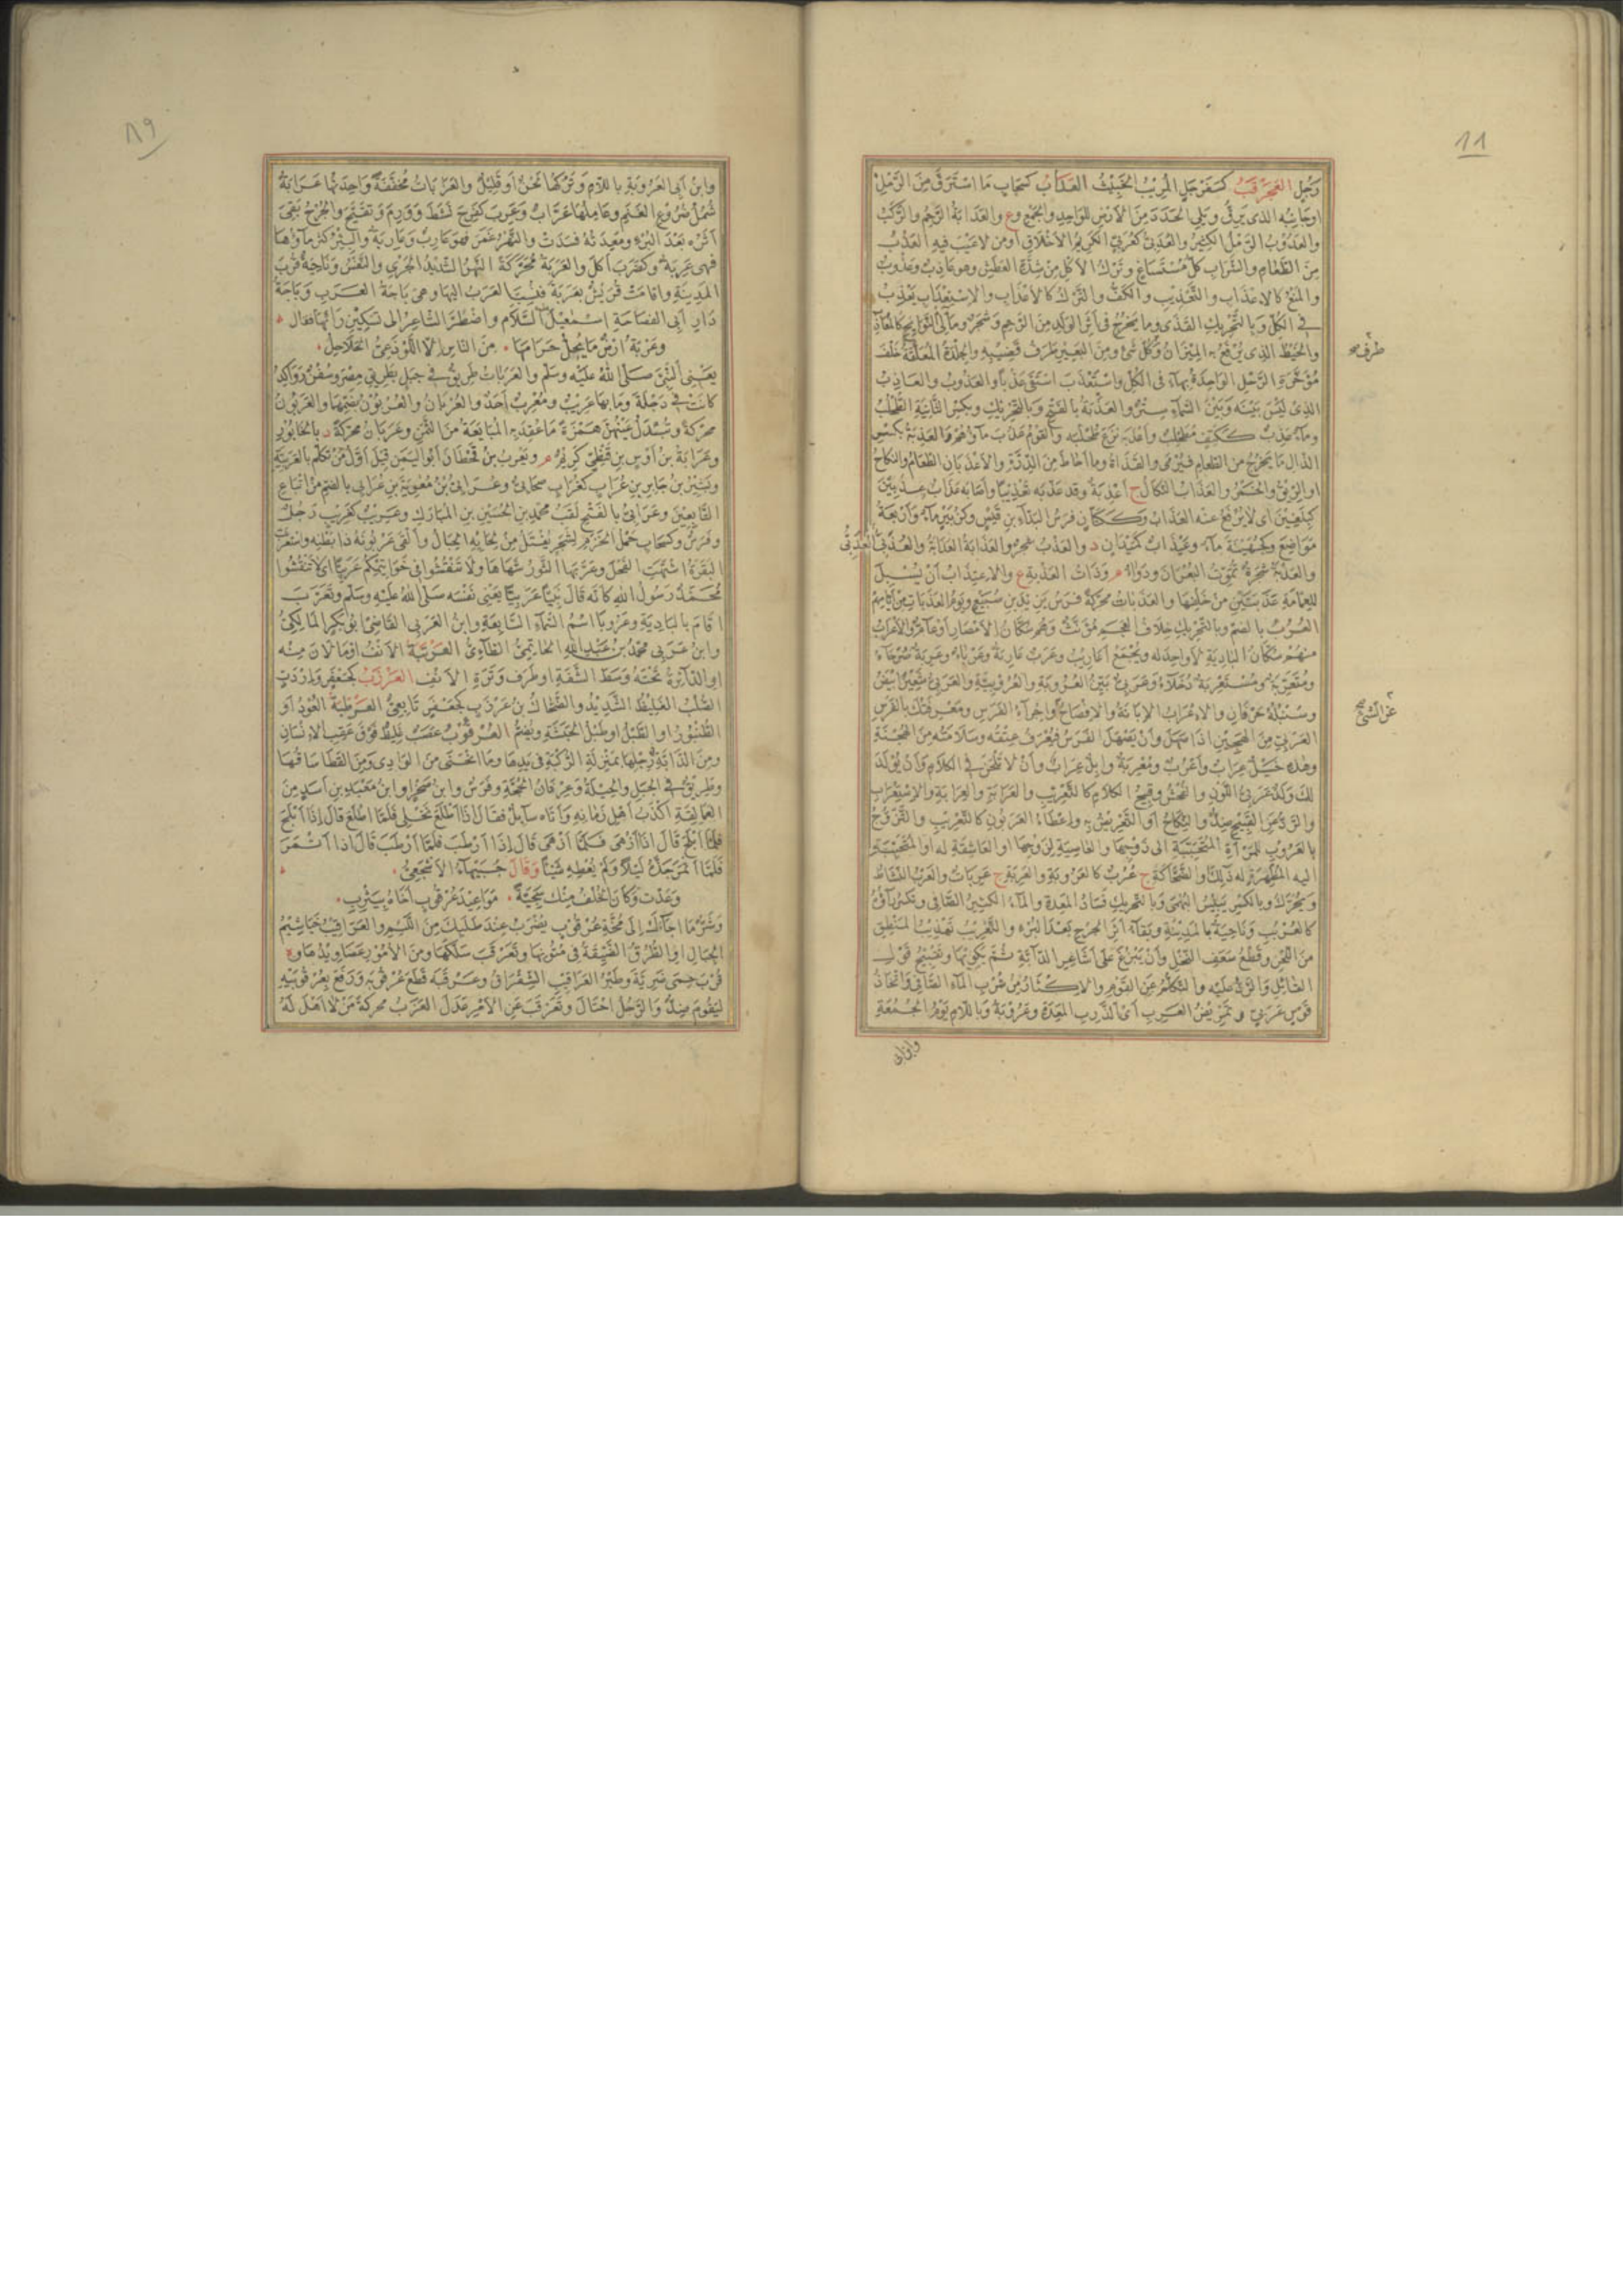 رجل العجرقب كسفرجل المريب الخبيث العداب كسحاب ما استرق من الرمل
او جانبه الذي يرق ويلي الجدد من الارض للواحد والجمع وع والعدابة الرحم والركب
والعدوب الرمل الكثير والعدبي كعربي الكريم الاخلاق او من لا عيب فيه العذب
من الطعام والشراب كل مستساغ وترك الاكل من شدة العطش وهو عاذب وعذوب
والمنع كالاعذاب والتعذيب والكف والترك كالاعذاب والاستعذاب يعذب
في الكل وبالتحريك القذى وما يخرج في اثر الولد من الرحم وشجر ومآلي النوايح كالمعاذب
والخيط الذي يرفع به الميزان وكل شئ ومن البعير طرف قضيبه والجلدة المعلقة خلف
طرف صح
مؤخرة الرحل الواحدة بهاء في الكل واستعذب استقى عذبا والعذوب والعاذب
الذي ليس بينه وبين السماء ستر والعذبة بالفتح وبالتحريك وبكسر الثانية الطحلب
وماء عذب ككتف مطحلب واعذبه نزع طحلبه والقوم عذب ماؤهم والعذبة بكسر
الذال ما يخرج من الطعام فيرمى والقذاة وما احاط من الدرة والاعذبان الطعام والنكاح
او الريق والخمر والعذاب النكال ج اعذبة وقد عذبه تعذيبا واصابه عذاب عذبين
كبلغين اي لا يرفع عنه العذاب وككتان فرس البداء بن قيس وكزبير ماء واربعة
مواضع وكجهينة ماءة وعيذاب كميدان د والعذب شجر والعذابة العدابة والعذبي العدبي
والعذبة شجرة تموت البعران ودواء م وذات العذبة ع والاعتذاب ان يسبل
للعمامة عذبتين من خلفها والعذبات محركة فرس يزيد بن سبيع ويوم العذبات من ايامهم
العرب بالضم وبالتحريك خلاف العجم مؤنث وهم سكان الامصار او عام والاعراب
منهم سكان البادية لا واحد له ويجمع اعاريب وعرب عاربة وعرباء وعربة صرحاء
ومتعربة ومستعربة دخلاء وعربي بين العروبة والعروبية والعربي شعير ابيض
وسنبله حرفان والاعراب الابانة والافصاح واجراء الفرس ومعرفتك بالفرس
عن الشئ صح
العربي من الهجين اذا صهل وان يصهل الفرس فيعرف عتقه وسلامته من الهجنة
وهذه خيل عراب واعرب ومعربة وابل عراب وان لا تلحن في الكلام وان يولد
لك ولد عربي اللون والفحش وقبيح الكلام كالتعريب والعرابة والعرابة والاستعراب
والرد عن القبيح ضد والنكاح او التعريض به واعطاء العربون كالتعريب والتزوج
بالعروب للمرأة المتحببة الى زوجها والعاصية لزوجها او العاشقة له او المتحببة
اليه المظهرة له ذلك او الضحاكة ج عرب كالعروبة والعربة ج عربات والعرب النشاط
ويحرك وبالكسر يبيس البهمى وبالتحريك فساد المعدة والماء الكثير الصافي وتكسر راؤه
كالعربب وناحية بالمدينة وبقاء اثر الجرح بعد البرء والتعريب تهذيب المنطق
من اللحن وقطع سعف النخل وان يبزغ على اشاعر الدابة ثم تكويها وتقبيح قول
القائل والرد عليه والتكلم عن القوم والاكثار من شرب الماء الصافي واتخاذ
قوس عربي وتمريض العرب اي الذرب المعدة وعروبة وباللام يوم الجمعة
وابن ابي
وابن ابي العروبة باللام وتركها لحن او قليل والعرابات مخففة واحدتها عرابة
شمل ضروع الغنم وعاملها عراب وعرب كفرح نشط وورم وتقيح والجرح بقي
اثره بعد البرء ومعدته فسدت والنهر غمر فهو عارب وعاربة والبئر كثر ماؤها
فهي عربة وكضرب اكل والعربة محركة النهر الشديد الجري والنفس وناحية قرب
المدينة واقامت قريش بعربة فنسبت العرب اليها وهي باحة العرب وباحة
دار ابي الفصاحة اسمعيل عليه السلام واضطر الشاعر الى تسكين رائها فقال
وعربة ارض ما يحل حرامها من الناس الا اللوذعي الحلاحل
يعني النبي صلى الله عليه وسلم والعربات طريق في جبل بطريق مصر وسفن رواكد
كانت في دجلة وما بها عريب ومعرب احد والعربان والعربون بضمهما والعربون
محركة وتبدل عينهن همزة ما عقد به المبايعة من الثمن وعربان محركة د بالخابور
وعرابة بن اوس بن قيظي كريم م ويعرب بن قحطان ابو اليمن قيل اول من تكلم بالعربية
وبشير بن جابر بن عراب كغراب صحابي وعرابي بن معوية بن عرابي بالضم من اتباع
التابعين وعرابي بالفتح لقب محمد بن الحسين بن المبارك وعريب كغريب رجل
وفرس وكسحاب حمل الخزم لشجر يفتل من لحائه الحبال والقى عربونه ذا بطنه واستعربت
البقرة اشتهت الفحل وعربها الثور شهاها ولا تنقشوا في خواتيمكم عربيا اي لا تنقشوا
محمد رسول الله كانه قال نبيا عربيا يعني نفسه صلى الله عليه وسلم وتعرب
اقام بالبادية وعروبا اسم السماء السابعة وابن العربي القاضي ابو بكر المالكي
وابن عربي محمد بن عبد الله الحاتمي الطائي العرتبة الانف او ما لان منه
او الدائرة تحته وسط الشفة او طرف وترة الانف العرزب كجعفر واردب
الصلب الغليظ الشديد والضحاك بن عرزب كجعفر تابعي العرطبة العود او
الطنبور او الطبل او طبل الحبشة ويضم العرقوب عصب غليظ فوق عقب الانسان
ومن الدابة في رجلها بمنزلة الركبة في يدها وما انحنى من الوادي ومن القطا ساقها
وطريق في الجبل والحيلة وعرفان الحجة وفرس وابن صخر او ابن معبد بن اسد من
العمالقة اكذب اهل زمانه واتاه سائل فقال اذا اطلع نخلي فلما اطلع قال اذا ابلح
فلما ابلح قال اذا ازهى فلما ازهى قال اذا ارطب فلما ارطب قال اذا اتمر
فلما اتمر جده ليلا ولم يعطه شيئا وقال جبيهاء الاشجعي
وعدت وكان الخلف منك سجية مواعيد عرقوب اخاه بيترب
وشر ما اجاءك الى مخة عرقوب يضرب عند طلبك من اللئيم والعراقيب خياشيم
الجبال او الطرق الضيقة في متونها وتعرقب سلكها ومن الامور عصاويدها و
قرب حمى ضرية وطير العراقيب الشقراق وعرقبه قطع عرقوبه ورفع بعرقوبيه
ليقوم ضد والرجل احتال وتعرقب عن الامر عدل العزب محركة من لا اهل له